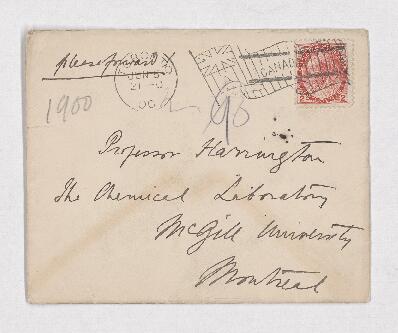 please forward
JUN 5
21-0
00
CANADA
1900
Professor Harrington
The Chemical Laboratory
McGill University
Montreal